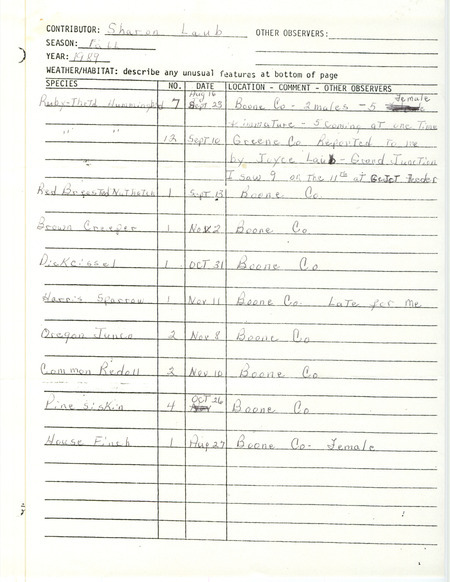 CONTRIBUTOR: Sharon Laub OTHER OBSERVERS:
SEASON: Fall
YEAR: 1989
WEATHER/HABITAT: describe any unusual features at bottom of page
SPECIES NO. DATE LOCATION - COMMENT - OTHER OBSERVERS
Ruby-Thtd Hummingbird 7 Aug 16 Sept 23 Boone Co - 2 males - 5 female
+ immature - 5 coming at one time
" " 12 Sept 10 Greene Co Reported to me
by Joyce Laub - Grand Junction
I saw 9 on the 11th at feeder
Red Breasted Nuthatch 1 Sept 13 Boone Co
Brown Creeper 1 Nov 2 Boone Co
Dickcissel 1 OCT 31 Boone Co
Harris Sparrow 1 Nov 11 Boone Co. Late for me
Oregon Junco 2 Nov 8 Boone Co
Common Redpoll 2 Nov 10 Boone Co
Pine Siskin 4 OCT 26 Boone Co
House Finch 1 Aug 27 Boone Co - Female